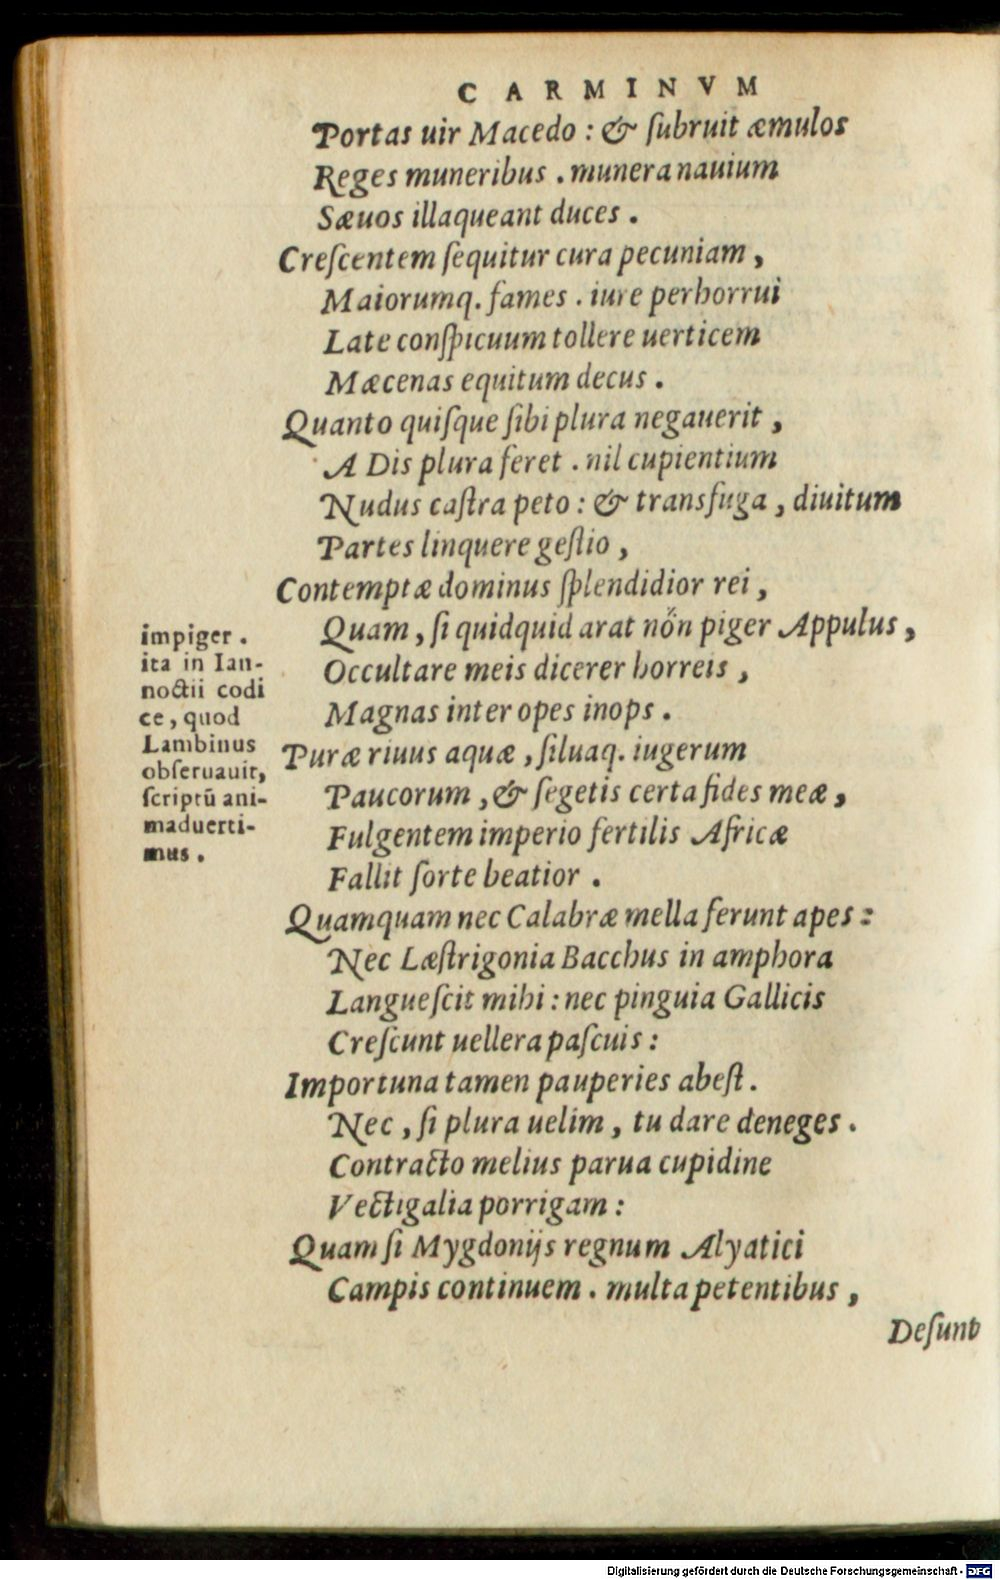 CARMINVM
Portas uir Macedo : & ſubruit æmulos
Reges muneribus . munera nauium
Sæuos illaqueant duces .
Creſcentem ſequitur cura pecuniam ,
Maiorumq. fames . iure perhorrui
Late conſpicuum tollere uerticem
Mæcenas equitum decus .
Quanto quiſque ſibi plura negauerit ,
A Dis plura feret . nil cupientium
Nudus caſtra peto : & transfuga , diuitum
Partes linquere geſtio ,
Contemptæ dominus ſplendidior rei ,
Quam , ſi quidquid arat nőn piger Appulus ,
Occultare meis dicerer horreis ,
Magnas inter opes inops .
Puræ riuus aquæ , ſiluaq. iugerum
Paucorum , & ſegetis certa fides meæ ,
Fulgentem imperio fertilis Africæ
Fallit ſorte beatior .
Quamquam nec Calabræ mella ferunt apes :
Nec Læſtrigonia Bacchus in amphora
Langueſcit mihi : nec pinguia Gallicis
Creſcunt uellera paſcuis :
Importuna tamen pauperies abeſt .
Nec , ſi plura uelim , tu dare deneges .
Contracto melius parua cupidine
Vectigalia porrigam :
Quam ſi Mygdonijs regnum Alyatici
Campis continuem . multa petentibus ,
Deſunt
impiger .
ita in Ian-
noctii codi
ce, quod
Lambinus
obſeruauit,
ſcriptū ani-
maduerti-
mus .
Digitalisierung gefördert durch die Deutsche Forschungsgemeinschaft - DFG